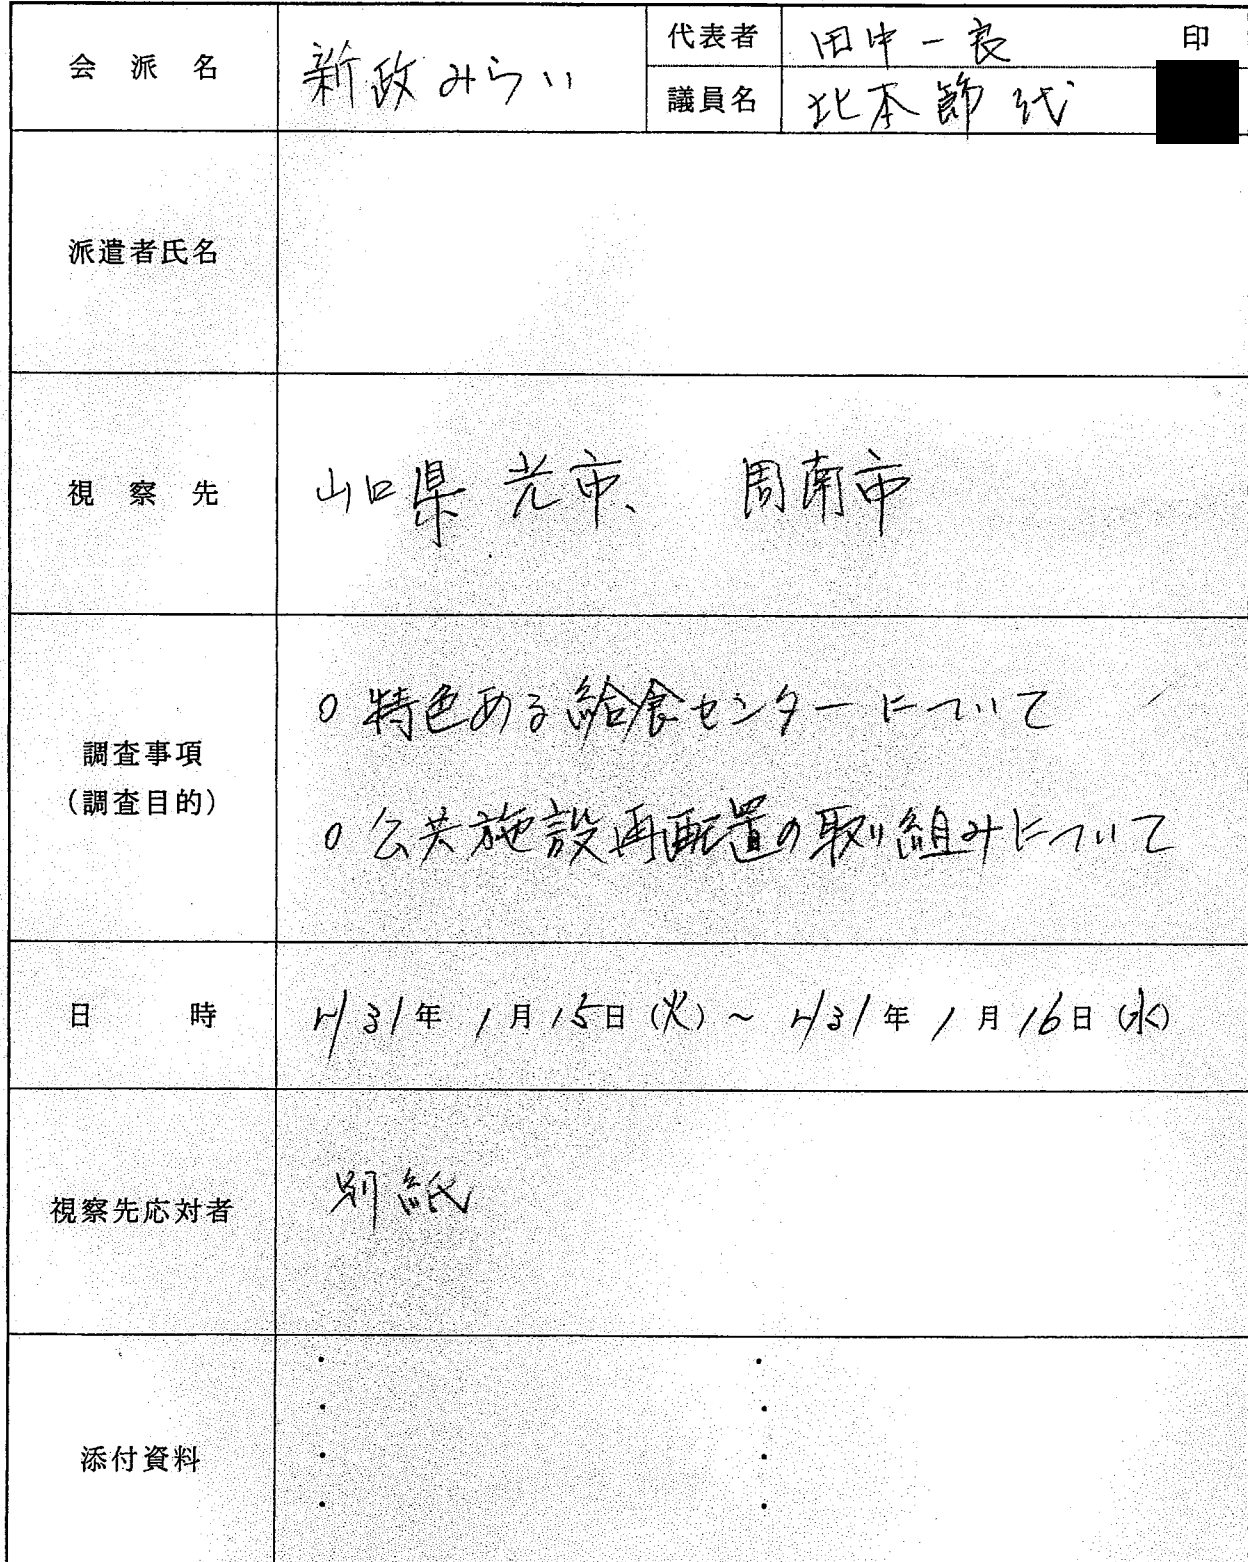 会派名 新政みらい 代表者 田中一良 印
議員名 北本節代
派遣者氏名
視察先 山口県 光市、 周南市
調査事項
(調査目的)
○ 特色ある給食センターについて
○ 公共施設再配置の取り組みについて
日時 H31年1月15日(火)~H31年1月16日(水)
視察先応対者 別紙
添付資料
・ ・
・ ・
・ ・
・ ・